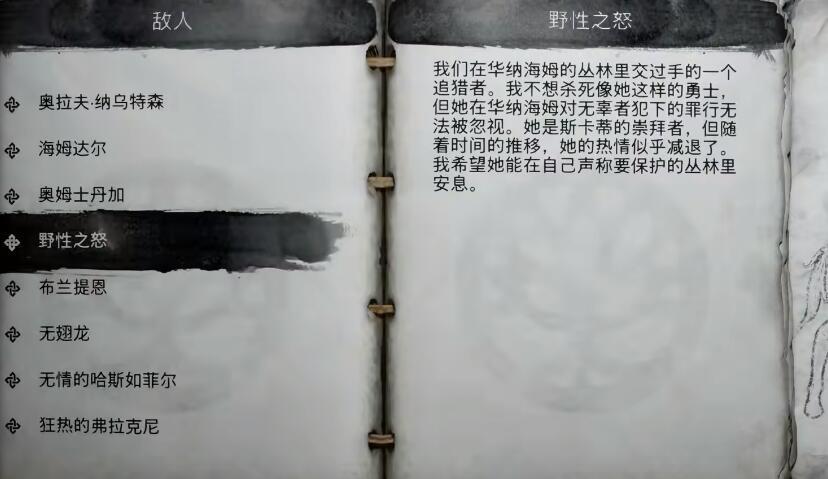 敌人
奥拉夫·纳乌特森
海姆达尔
奥姆士丹加
野性之怒
布兰提恩
无翅龙
无情的哈斯如菲尔
狂热的弗拉克尼
野性之怒
我们在华纳海姆的丛林里交过手的一个
追猎者。我不想杀死像她这样的勇士，
但她在华纳海姆对无辜者犯下的罪行无
法被忽视。她是斯卡蒂的崇拜者，但随
着时间的推移，她的热情似乎减退了。
我希望她能在自己声称要保护的丛林里
安息。